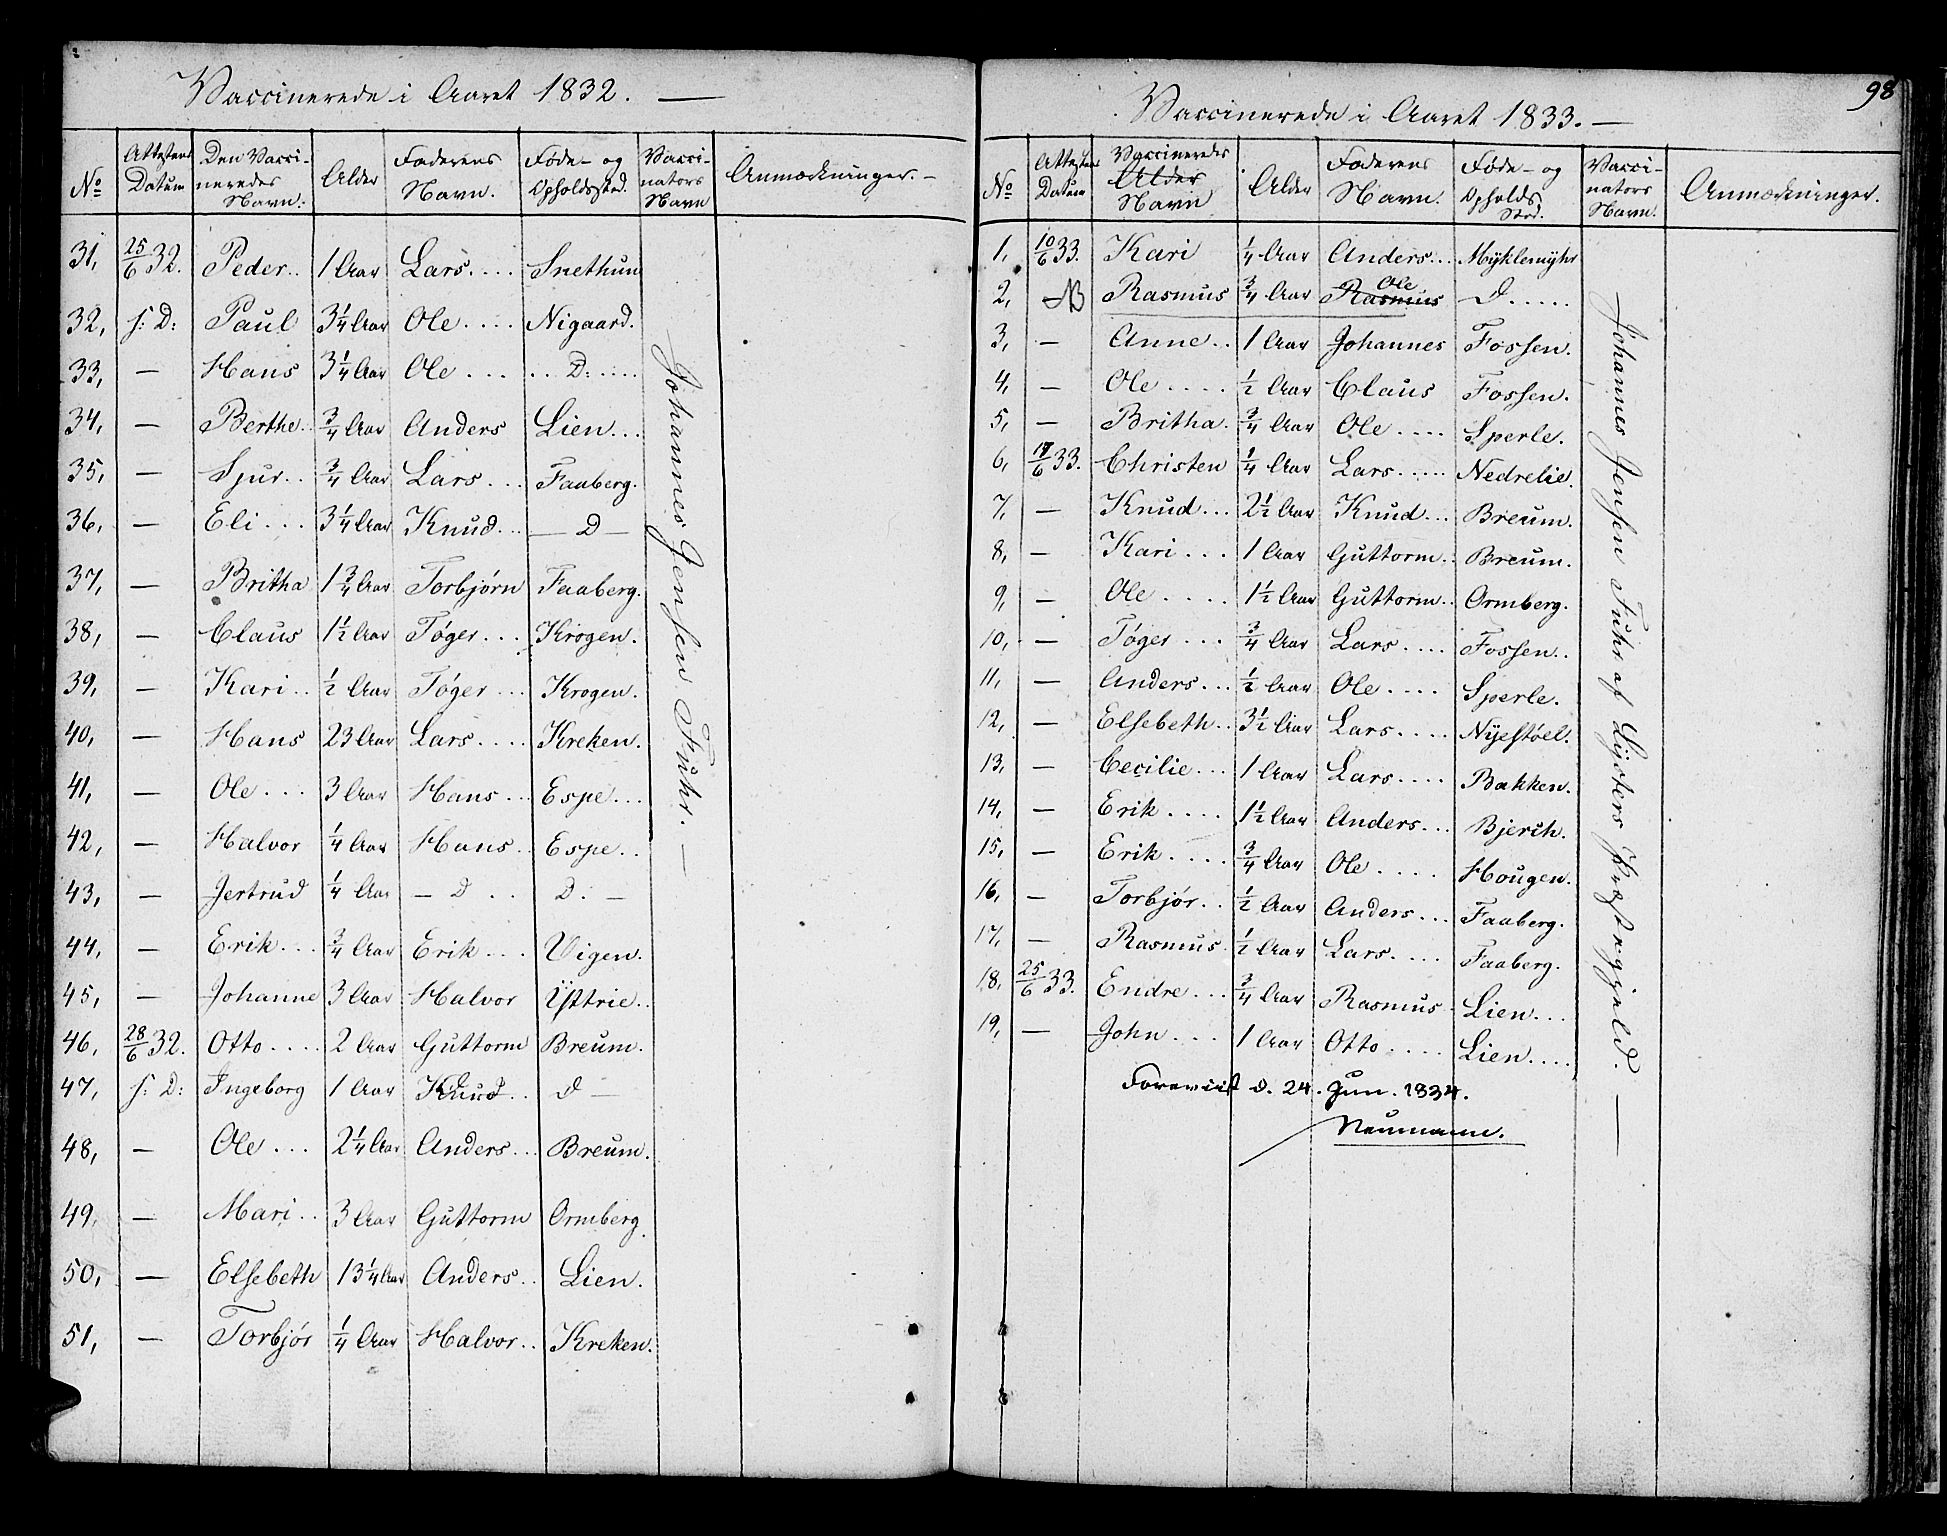 Vaccinerede i Aaret 1832. —
No | Attestens Datum | Den Vaccineredes Navn: | Alder | Faderens Navn. | Føde- og Opholdssted. | Vaccinators Navn | Anmærkninger. -
31, | 25/6 32. | Peder.. | 1 Aar | Lars.... | Snethun
32, | s: D: | Paul | 3 1/4 Aar | Ole.... | Nigaard.
33, | — | Hans | 3 1/4 Aar | Ole... | .. D: ....
34, | — | Berthe.. | 3/4 Aar | Anders | Lien...
35, | — | Sjur.. | 3/4 Aar | Lars... | Faaberg.
36, | — | Eli... | 3 1/4 Aar | Knud... | — D —
37, | — | Britha | 1 3/4 Aar | Torbjørn | Faaberg.
38, | — | Claus | 1 1/2 Aar | Tøger... | Krogen.
39, | — | Kari.. | 1/2 Aar | Tøger... | Krogen.
40, | — | Hans | 23 Aar | Lars.... | Kreken.
41, | — | Ole... | 3 Aar | Hans.. | Espe...
42, | — | Halvor | 1/4 Aar | Hans.. | Espe..
43, | — | Jertrud | 1/4 Aar | — D .. | D. —
44, | — | Erik... | 3/4 Aar | Erik... | Vigen.
45, | — | Johanne | 3 Aar | Halvor | Yttrie..
46, | 28/6 32. | Otto.... | 2 Aar | Guttorm | Breum.
47, | s: D: | Ingeborg | 1 Aar | Knud.. | D —
48, | — | Ole... | 2 1/4 Aar | Anders... | Breum.
49, | — | Mari.. | 3 Aar | Guttorm | Ormberg.
50, | — | Elsebeth | 13 1/4 Aar | Anders.. | Lien.
51, | — | Torbjør | 1/4 Aar | Halvor.. | Kreken.
Johannes Jensen Fuhr. —
98
Vaccinerede i Aaret 1833. —
No | Attestens Datum | Vaccineredes Alder Navn | Alder | Faderens Navn. | Føde- og Opholds Sted. | Vaccinators Navn. | Anmærkninger.
1, | 10/6 33. | Kari | 1/4 Aar | Anders... | Myklemyhr
2, | NB | Rasmus | 3/4 Aar | Rasmus Ole | D.....
3, | — | Anne.. | 1 Aar | Johannes | Fossen.
4, | — | Ole.... | 1/2 Aar | Claus | Fossen.
5, | — | Britha. | 3/4 Aar | Ole.... | Sperle.
6, | 17/6 33. | Christen | 1/4 Aar | Lars..... | Nedrelie.
7, | — | Knud... | 2 1/2 Aar | Knud... | Breum.
8, | — | Kari... | 1 Aar | Guttorm.. | Breum.
9, | — | Ole.... | 1 1/2 Aar | Guttorm.. | Ormberg.
10, | — | Tøger... | 3/4 Aar | Lars.... | Fossen..
11, | — | Anders... | 1/2 Aar | Ole.... | Sperle.
12, | — | Elsebeth.. | 3 1/2 Aar | Lars.... | Nyestøel.
13, | — | Cecilie... | 1 Aar | Lars.... | Bakken.
14, | — | Erik.... | 1 1/2 Aar | Anders... | Bjerck.
15, | — | Erik.... | 3/4 Aar | Ole.... | Hougen.
16, | — | Torbjør.. | 1/2 Aar | Anders... | Faaberg.
17, | — | Rasmus. | 1/2 Aar | Lars.... | Faaberg.
18, | 25/6 33. | Endre... | 3/4 Aar | Rasmus | Lien...
19, | — | John... | 1 Aar | Otto.... | Lien....
Johannes Jensen Fuhr af Lysters Præstegjeld. —
Foreviist d. 24. Jun. 1834.
Neumann.